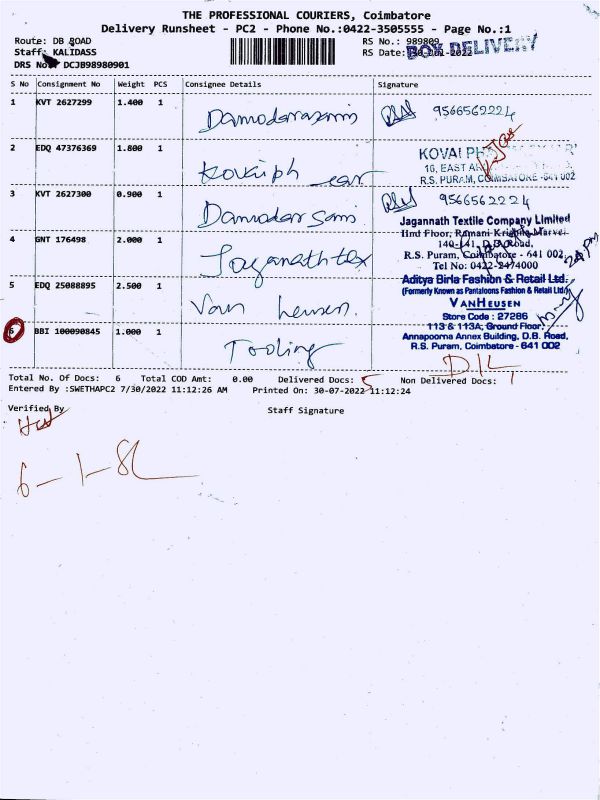 THE PROFESSIONAL COURIERS, Coimbatore
Delivery Runsheet - PC2 - Phone No.:0422-3505555 - Page No.:1
Route: DB ROAD
Staff: KALIDASS
DRS No.: DCJB98980901
RS No.: 989809
RS Date: 30-Jul-2022
BOX DELIVERY
S No Consignment No Weight PCS Consignee Details Signature
1 KVT 2627299 1.400 1 Damodarasamis 9566562224
2 EDQ 47376369 1.800 1
KOVAI
16, EAST
R.S. PURAM, COIMBATORE -641 002
3 KVT 2627300 0.900 1 Damodar Sami 9566562224
4 GNT 176498 2.000 1 Jaganath tex
Jagannath Textile Company Limited
IInd Floor, Ramani Krishna Marvel
140-141, D.B.Road,
R.S. Puram, Coimbatore - 641 002
Tel No: 0422-2474000
5 EDQ 25088895 2.500 1 Van heusen.
Aditya Birla Fashion & Retail Ltd.
(Formerly Known as Pantaloons Fashion & Retail Ltd.)
VANHEUSEN
Store Code : 27286
113 & 113A, Ground Floor,
Annapoorna Annex Building, D.B. Road,
R.S. Puram, Coimbatore - 641 002
6 BBI 100090845 1.000 1 Tooling D/L
Total No. Of Docs: 6 Total COD Amt: 0.00 Delivered Docs: 5 Non Delivered Docs: 1
Entered By :SWETHAPC2 7/30/2022 11:12:26 AM Printed On: 30-07-2022 11:12:24
Verified By Staff Signature
6-1-8L